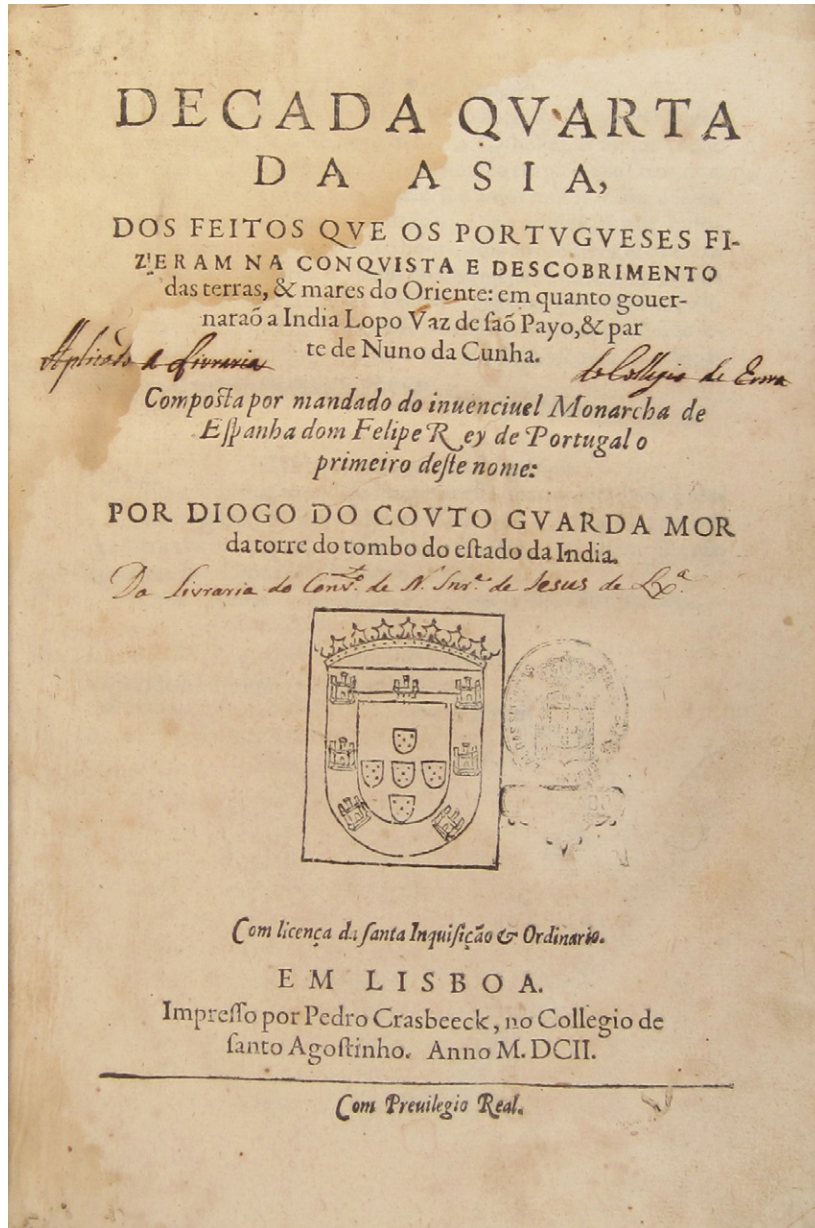 DECADA QVARTA
DA ASIA,
DOS FEITOS QVE OS PORTVGVESES FI-
ZERAM NA CONQVISTA E DESCOBRIMENTO
das terras, & mares do Oriente: em quanto gouer-
naraõ a India Lopo Vaz de saõ Payo, & par
te de Nuno da Cunha.
Aplicado a Livraria do Collegio de
Composta por mandado do inuenciuel Monarcha de
Espanha dom Felipe Rey de Portugal o
primeiro deste nome:
POR DIOGO DO COVTO GVARDA MOR
da torre do tombo do estado da India.
Da livraria do Conv.to de N. Snr.a de Jesus de Lx.a
Com licença da santa Inquisição & Ordinario.
EM LISBOA.
Impresso por Pedro Crasbeeck, no Collegio de
santo Agostinho. Anno M. DCII.
Com Preuilegio Real.